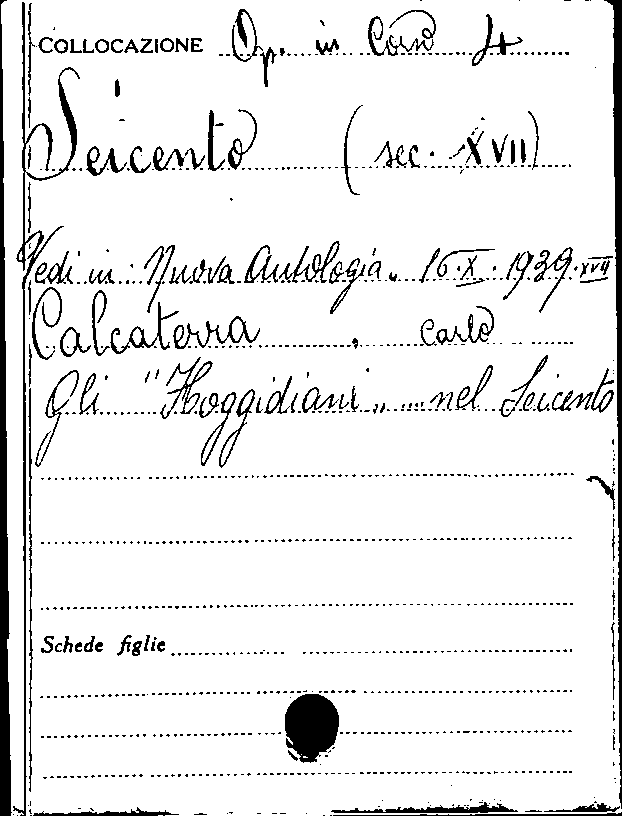 COLLOCAZIONE Op. in Corso 4
Seicento (sec. XVII)
Vedi in: Nuova Antologia„ 16.X.1939.XVII
Calcaterra, Carlo
Gli "Hoggidiani„ nel Seicento
Schede figlie